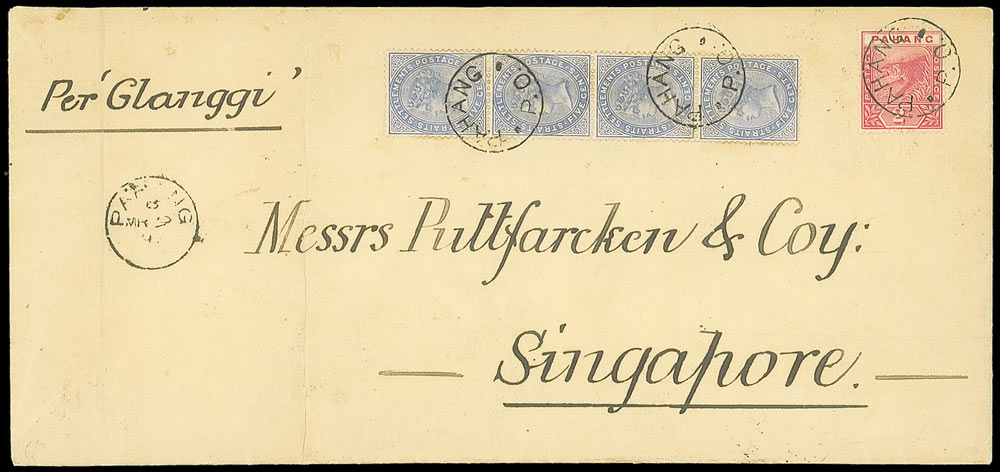 Per 'Glanggi'
STRAITS SETTLEMENTS POSTAGE
PAHANG P.O.
PAHANG P.O.
PAHANG
PAHANG P.O.
PAHANG
Messrs Puttfarcken & Coy:
Singapore.